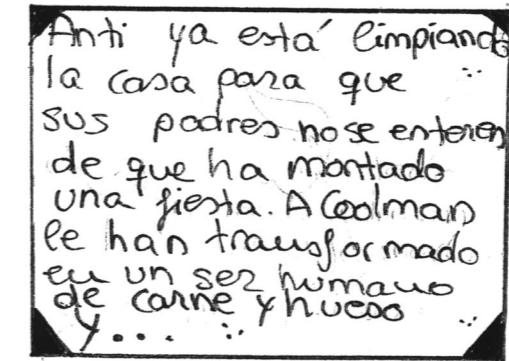 Anti ya está limpiando
la casa para que
sus padres no se enteren
de que ha montado
una fiesta. A Coolman
le han transformado
en un ser humano
de carne y hueso
y...